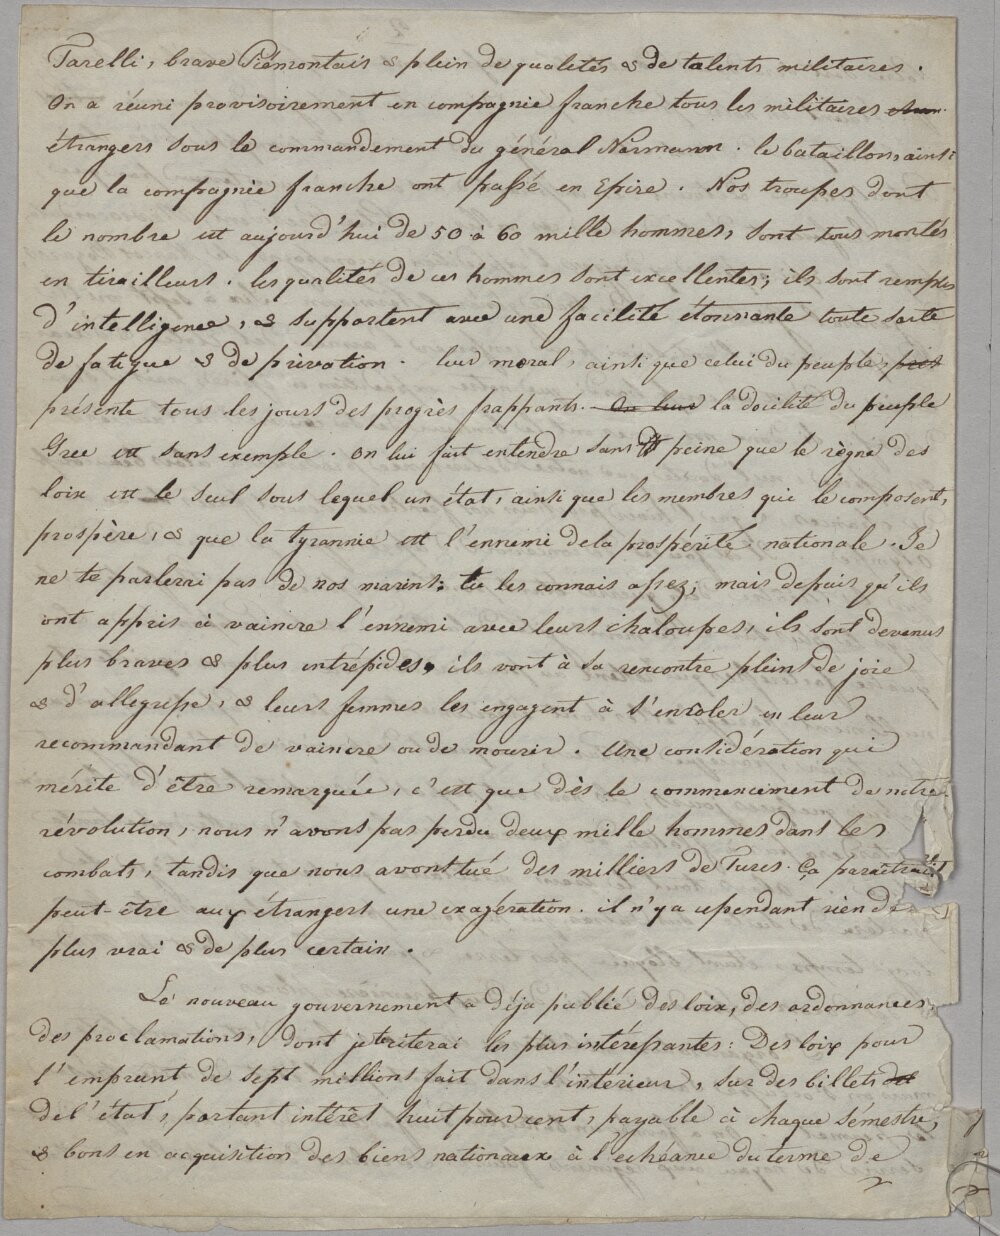 Tarelli, brave Piémontais & plein de qualités & de talents militaires.
On a réuni provisoirement en compagnie franche tous les militaires
étrangers sous le commandement du général Normann. le bataillon, ainsi
que la compagnie franche ont passé en Epire. Nos troupes dont
le nombre est aujourd'hui de 50 à 60 mille hommes, sont tous montés
en tirailleurs. les qualités de ces hommes sont excellentes; ils sont remplis
d'intelligence, & supportent avec une facilité étonnante toute sorte
de fatigue & de privation. leur moral, ainsi que celui du peuple,
présente tous les jours des progrès frappants. On leur la docilité du peuple
Grec est sans exemple. On lui fait entendre sans peine que le règne des
loix est le seul sous lequel un état, ainsi que les membres qui le composent,
prospère, & que la tyrannie est l'ennemi de la prospérité nationale. Je
ne te parlerai pas de nos marins; tu les connais assez; mais depuis qu'ils
ont appris à vaincre l'ennemi avec leurs chaloupes, ils sont devenus
plus braves & plus intrépides, ils vont à sa rencontre pleins de joie
& d'allegresse, & leurs femmes les engagent à s'enroler en leur
recommandant de vaincre ou de mourir. Une considération qui
mérite d'être remarquée, c'est que dès le commencement de notre
révolution, nous n'avons pas perdu deux mille hommes dans les
combats, tandis que nous avons tué des milliers de Turcs. Ça paraîtrait
peut-être aux étrangers une exagération. il n'y a cependant rien de
plus vrai & de plus certain.
Le nouveau gouvernement a déja publié des loix, des ordonnances,
des proclamations, dont je te citerai les plus intéressantes: Des loix pour
l'emprunt de sept millions fait dans l'intérieur, sur des billets
de l'état, portant intérêt huit pour cent, payable à chaque sémestre,
& bons en acquisition des biens nationaux à l'échéance du terme de